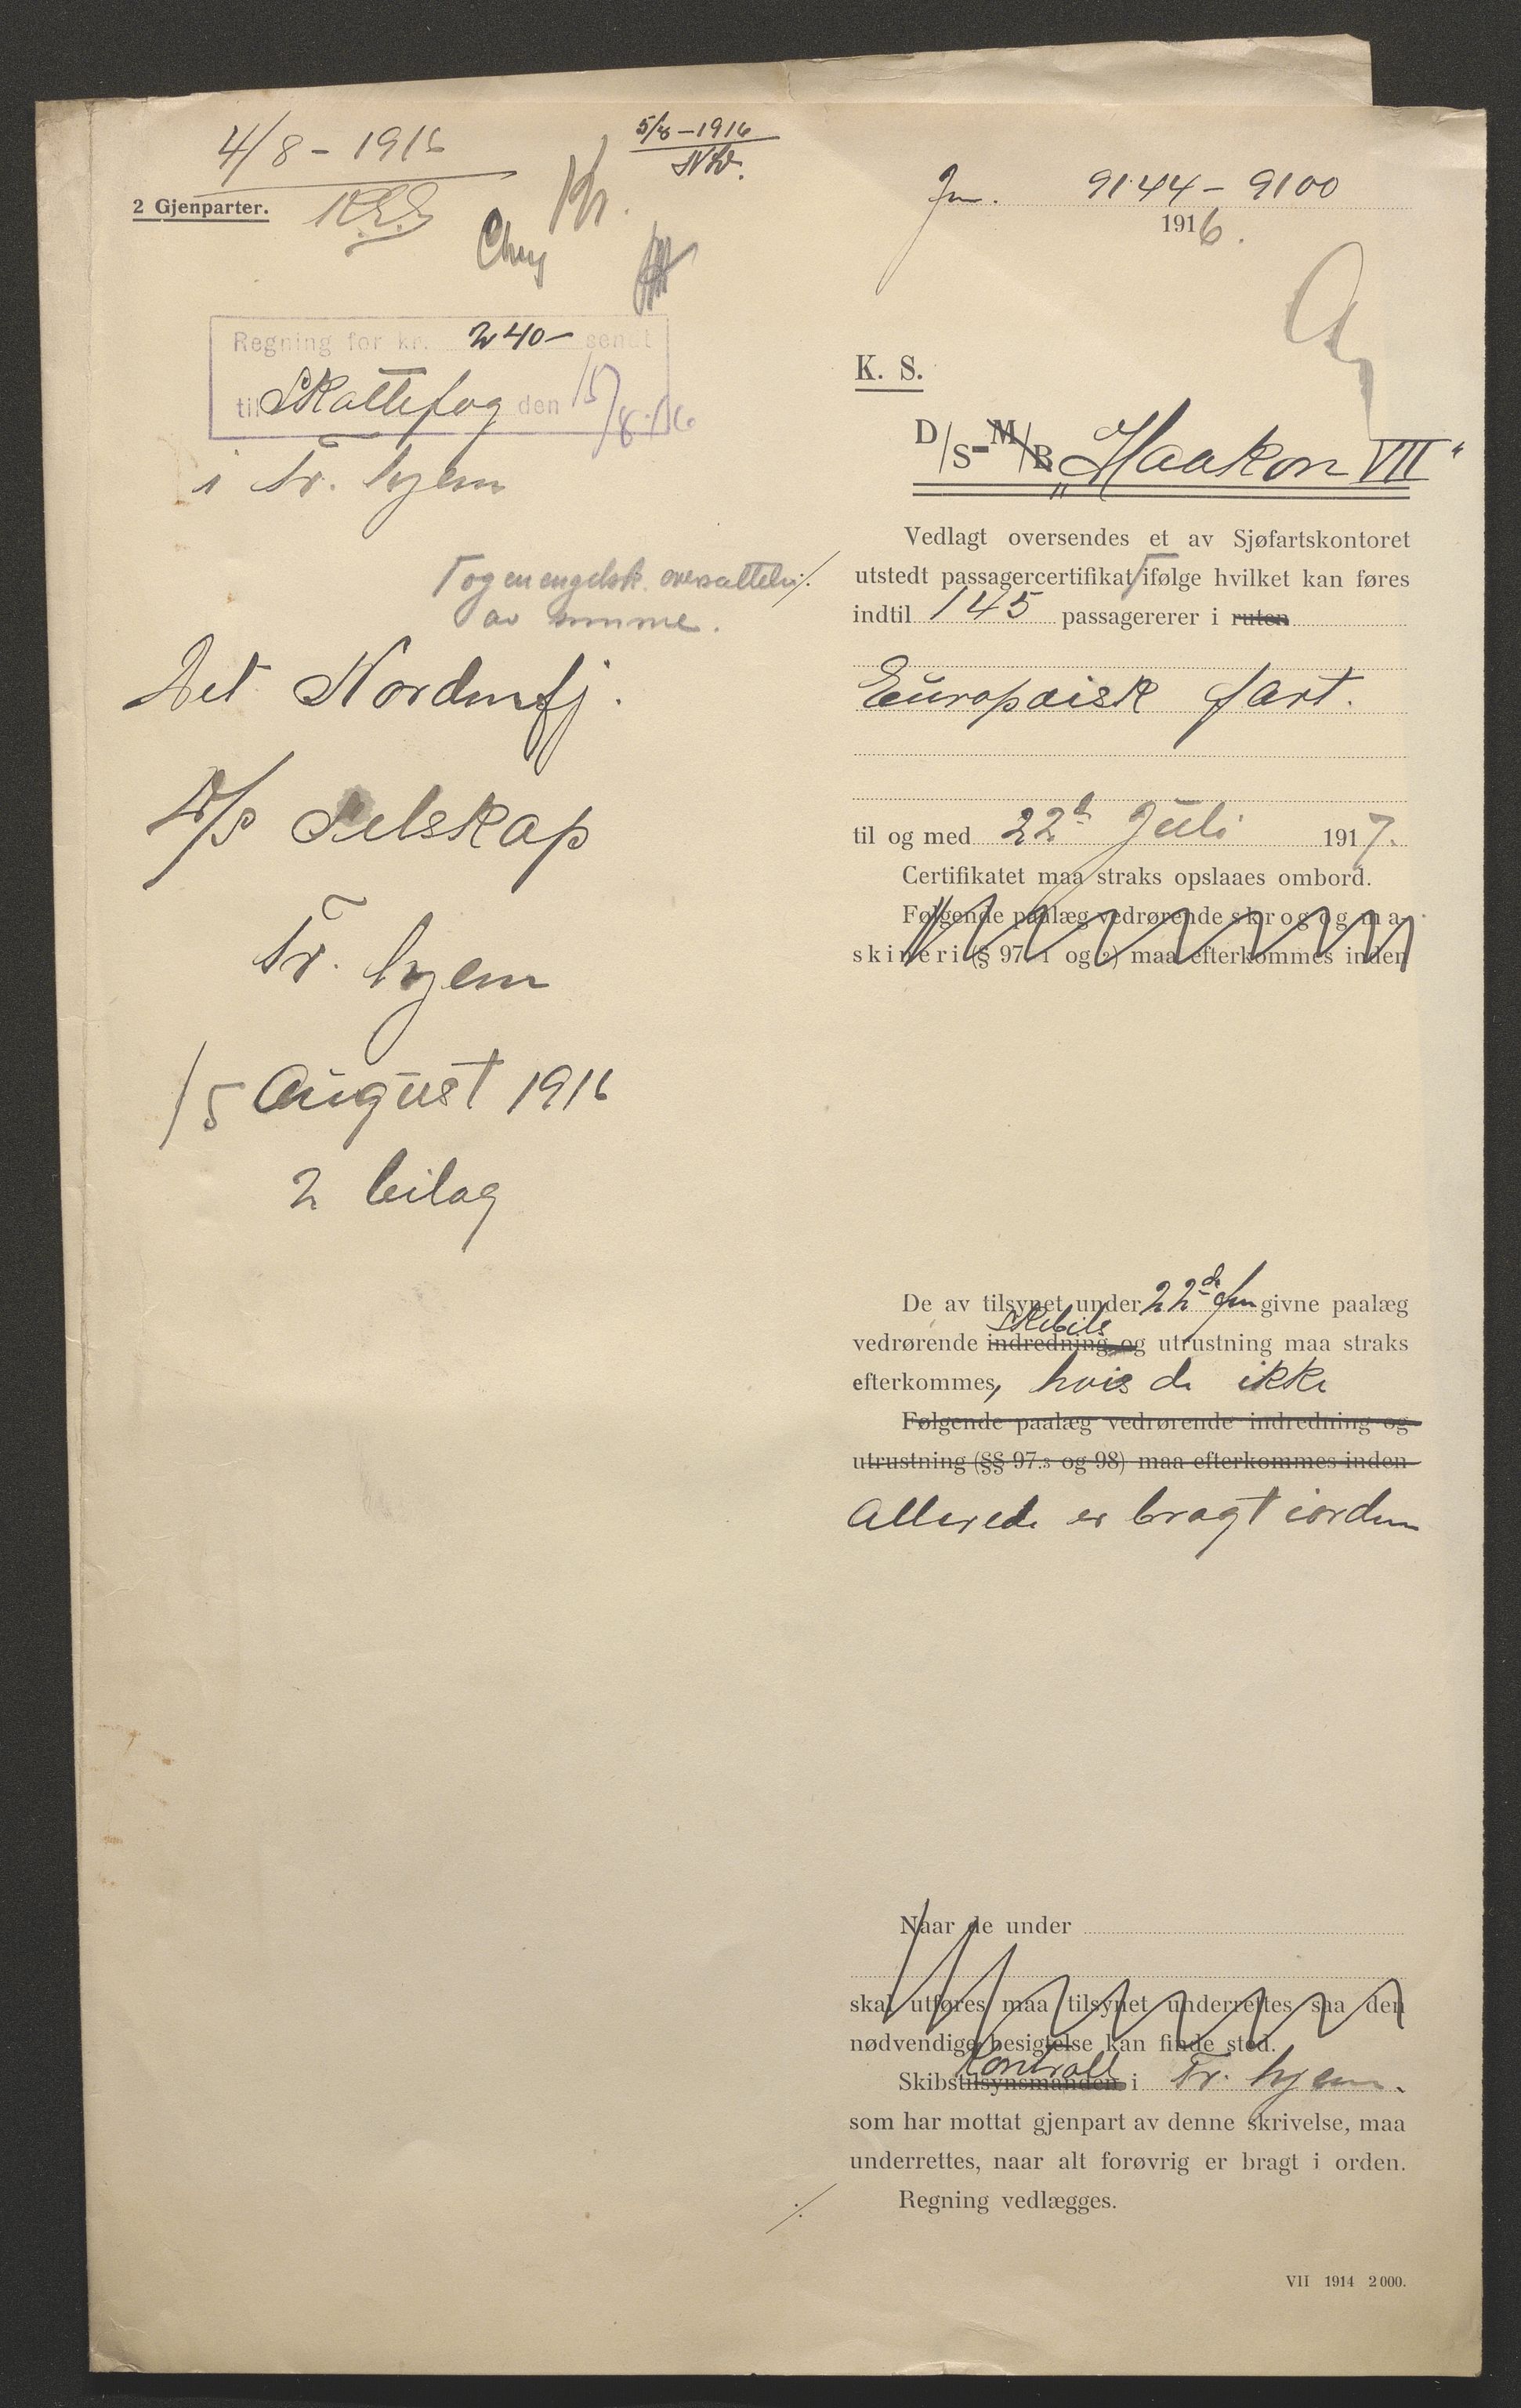 4/8 - 1916
5/8 - 1916
2 Gjenparter.
Jn. 9144 - 9100
1916.
Regning for kr. 240- sendt
til Skattefog den 15/8.16
i Tr. hjem
K. S.
D/S - M/B „Haakon VII"
Vedlagt oversendes et av Sjøfartskontoret
utstedt passagercertifikat ifølge hvilket kan føres
Γ og en engelsk. oversættelse
av samme.
indtil 145 passagererer i ruten
Europæisk fart.
til og med 22de Juli 1917.
Certifikatet maa straks opslaaes ombord.
Følgende paalæg vedrørende skrog og ma-
skineri (§ 97. 1 og 2) maa efterkommes inden
Det Nordenfj.
D/S Selskap
Tr. hjem
15 August 1916
2 bilag
De av tilsynet under 22de Jun givne paalæg
vedrørende indredning og utrustning maa straks
efterkommes, hvis de ikke
Følgende paalæg vedrørende indredning og
utrustning (§§ 97.3 og 98) maa efterkommes inden
Allerede er bragt i orden
Naar de under
skal utføres maa tilsynet underrettes saa den
nødvendige besigtelse kan finde sted.
Kontroll
Skibstilsynsmanden i Tr. hjem.
som har mottat gjenpart av denne skrivelse, maa
underrettes, naar alt forøvrig er bragt i orden.
Regning vedlægges.
VII 1914 2000.